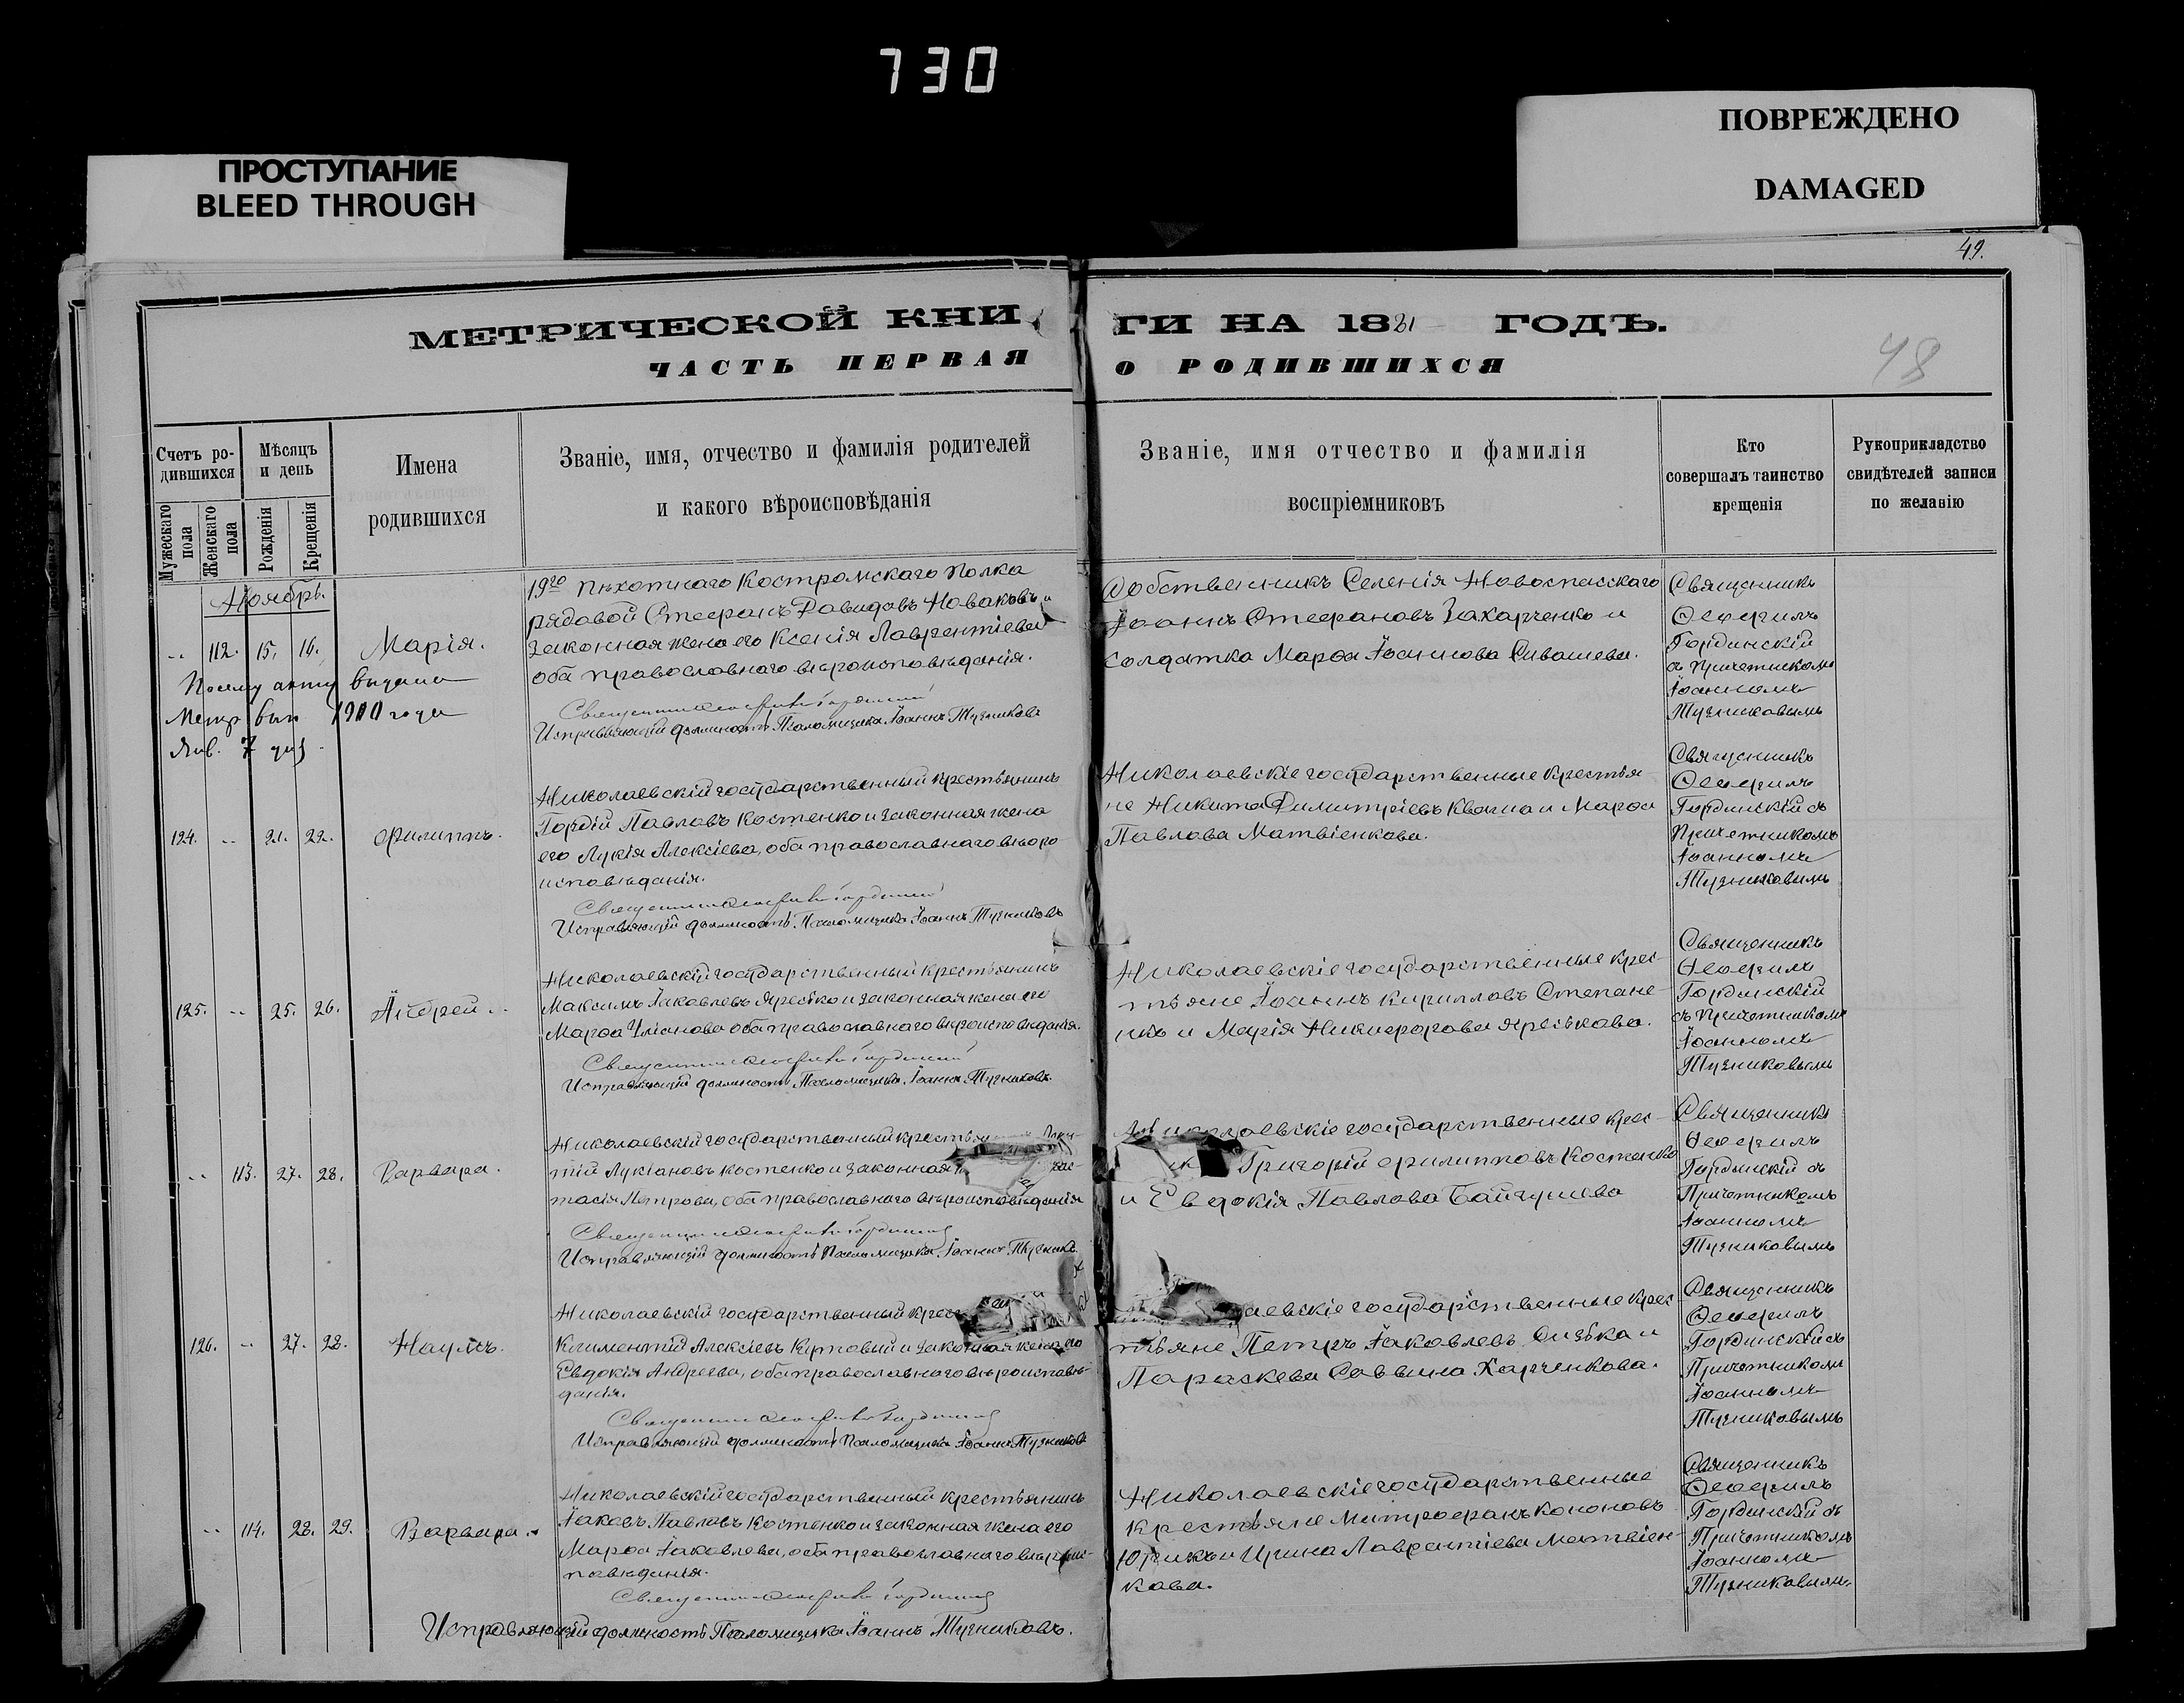 730
ПРОСТУПАНИЕ
BLEED THROUGH
ПОВРЕЖДЕНО
DAMAGED
49.
48
МЕТРИЧЕСКОЙ КНИ
ГИ НА 1881 ГОДЪ.
ЧАСТЬ ПЕРВАЯ
О РОДИВШИХСЯ
Счетъ ро-
дившихся
Мужескаго пола
Женскаго пола
Мѣсяцъ
и день
Рожденія
Крещенія
Имена
родившихся
Званіе, имя, отчество и фамилія родителей
и какого вѣроисповѣданія
Званіе, имя отчество и фамилія
воспріемниковъ
Кто
совершалъ таинство
крещенія
Рукоприкладство
свидѣтелей записи
по желанію
Ноябрь.
112. 15. 16. Марія.
По сему акту выдана
Метр вып 1900 года
Янв. 7 дня
19го Пѣхотнаго Костромскаго Полка
рядовой Стефанъ Давидовъ Новаковъ и
законная жена его Ксенія Лаврентіева
оба православнаго вѣроисповѣданія.
Священникъ Ѳеофилъ Гординскій
Исправляющій должность Псаломщика Іоаннъ Тузниковъ
Собственникъ Селенія Новоспасскаго
Іоаннъ Стефановъ Захарченко и
солдатка Марѳа Іоаннова Сивашева.
Священникъ
Ѳеофилъ
Гординскій
съ Причетникомъ
Іоанномъ
Тузниковымъ
124. 21. 22. Филиппъ.
Николаевскій государственный крестьянинъ
Гордій Павловъ Костенко и законная жена
его Лукія Алексіева, оба православнаго вѣро
исповѣданія.
Священникъ Ѳеофилъ Гординскій
Исправляющій должность Псаломщика Іоаннъ Тузниковъ
Николаевскіе государственные крестья
не Никита Димитріевъ Кваша и Марѳа
Павлова Матвіенкова.
Священникъ
Ѳеофилъ
Гординскій съ
Причетникомъ
Іоанномъ
Тузниковымъ
125. 25. 26. Андрей.
Николаевскій государственный крестьянинъ
Максимъ Іаковлевъ Яресько и законная жена его
Марѳа Уліанова оба православнаго вѣроисповѣданія.
Священникъ Ѳеофилъ Гординскій
Исправляющій должность Псаломщика Іоаннъ Тузниковъ.
Николаевскіе государственные крес-
тьяне Іоаннъ Кирилловъ Степане-
нко и Марія Никифорова Яреськова.
Священникъ
Ѳеофилъ
Гординскій
съ Причетникомъ
Іоанномъ
Тузниковымъ
113. 27. 28. Варвара.
Николаевскій государственный крестья
тій Лукіановъ Костенко и законная
тасія Петрова, оба православнаго вѣроисповѣданія
Священникъ Ѳеофилъ Гординскій
Исправляющій должность Псаломщика Іоаннъ Тузников
Николаевскіе государственные крес-
Григорій Филипповъ Костенко
и Евдокія Павлова Байгушева
Священникъ
Ѳеофилъ
Гординскій съ
Причетникомъ
Іоанномъ
Тузниковымъ
126. 27. 28. Наумъ.
Николаевскій государственный крес
Климентій Алексіевъ и законная жена его
Евдокія Андреева, оба православнаго вѣроисповѣ-
данія.
Священникъ Ѳеофилъ Гординскій
Исправляющій должность Псаломщика Іоаннъ Тузниковъ
аевскіе государственные крес-
тьяне Петръ Іаковлевъ и
Параскева Саввина Харченкова.
Священникъ
Ѳеофилъ
Гординскій съ
Причетникомъ
Іоанномъ
Тузниковымъ
114. 28. 29. Варвара.
Николаевскій государственный крестьянинъ
Іаковъ Павловъ Костенко и законная жена его
Марѳа Іаковлева, оба православнаго вѣроис-
повѣданія.
Священникъ Ѳеофилъ Гординскій
Исправляющій должность Псаломщика Іоаннъ Тузниковъ.
Николаевскіе государственные
крестьяне Митрофанъ Кононовъ
и Ирина Лаврентіева Матвіен-
кова.
Священникъ
Ѳеофилъ
Гординскій съ
Причетникомъ
Іоанномъ
Тузниковымъ